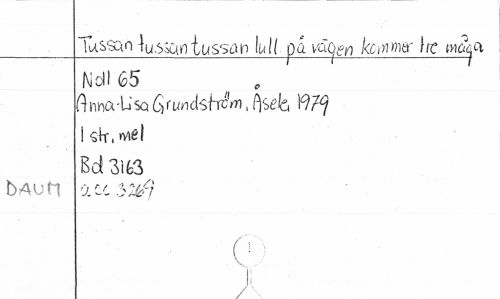 Tussan tussan tussan lull på vägen kommer tre måga
Noll 65
Anna-Lisa Grundström, Åsele, 1979
1 str, mel
Bd 3163
DAUM acc 3269